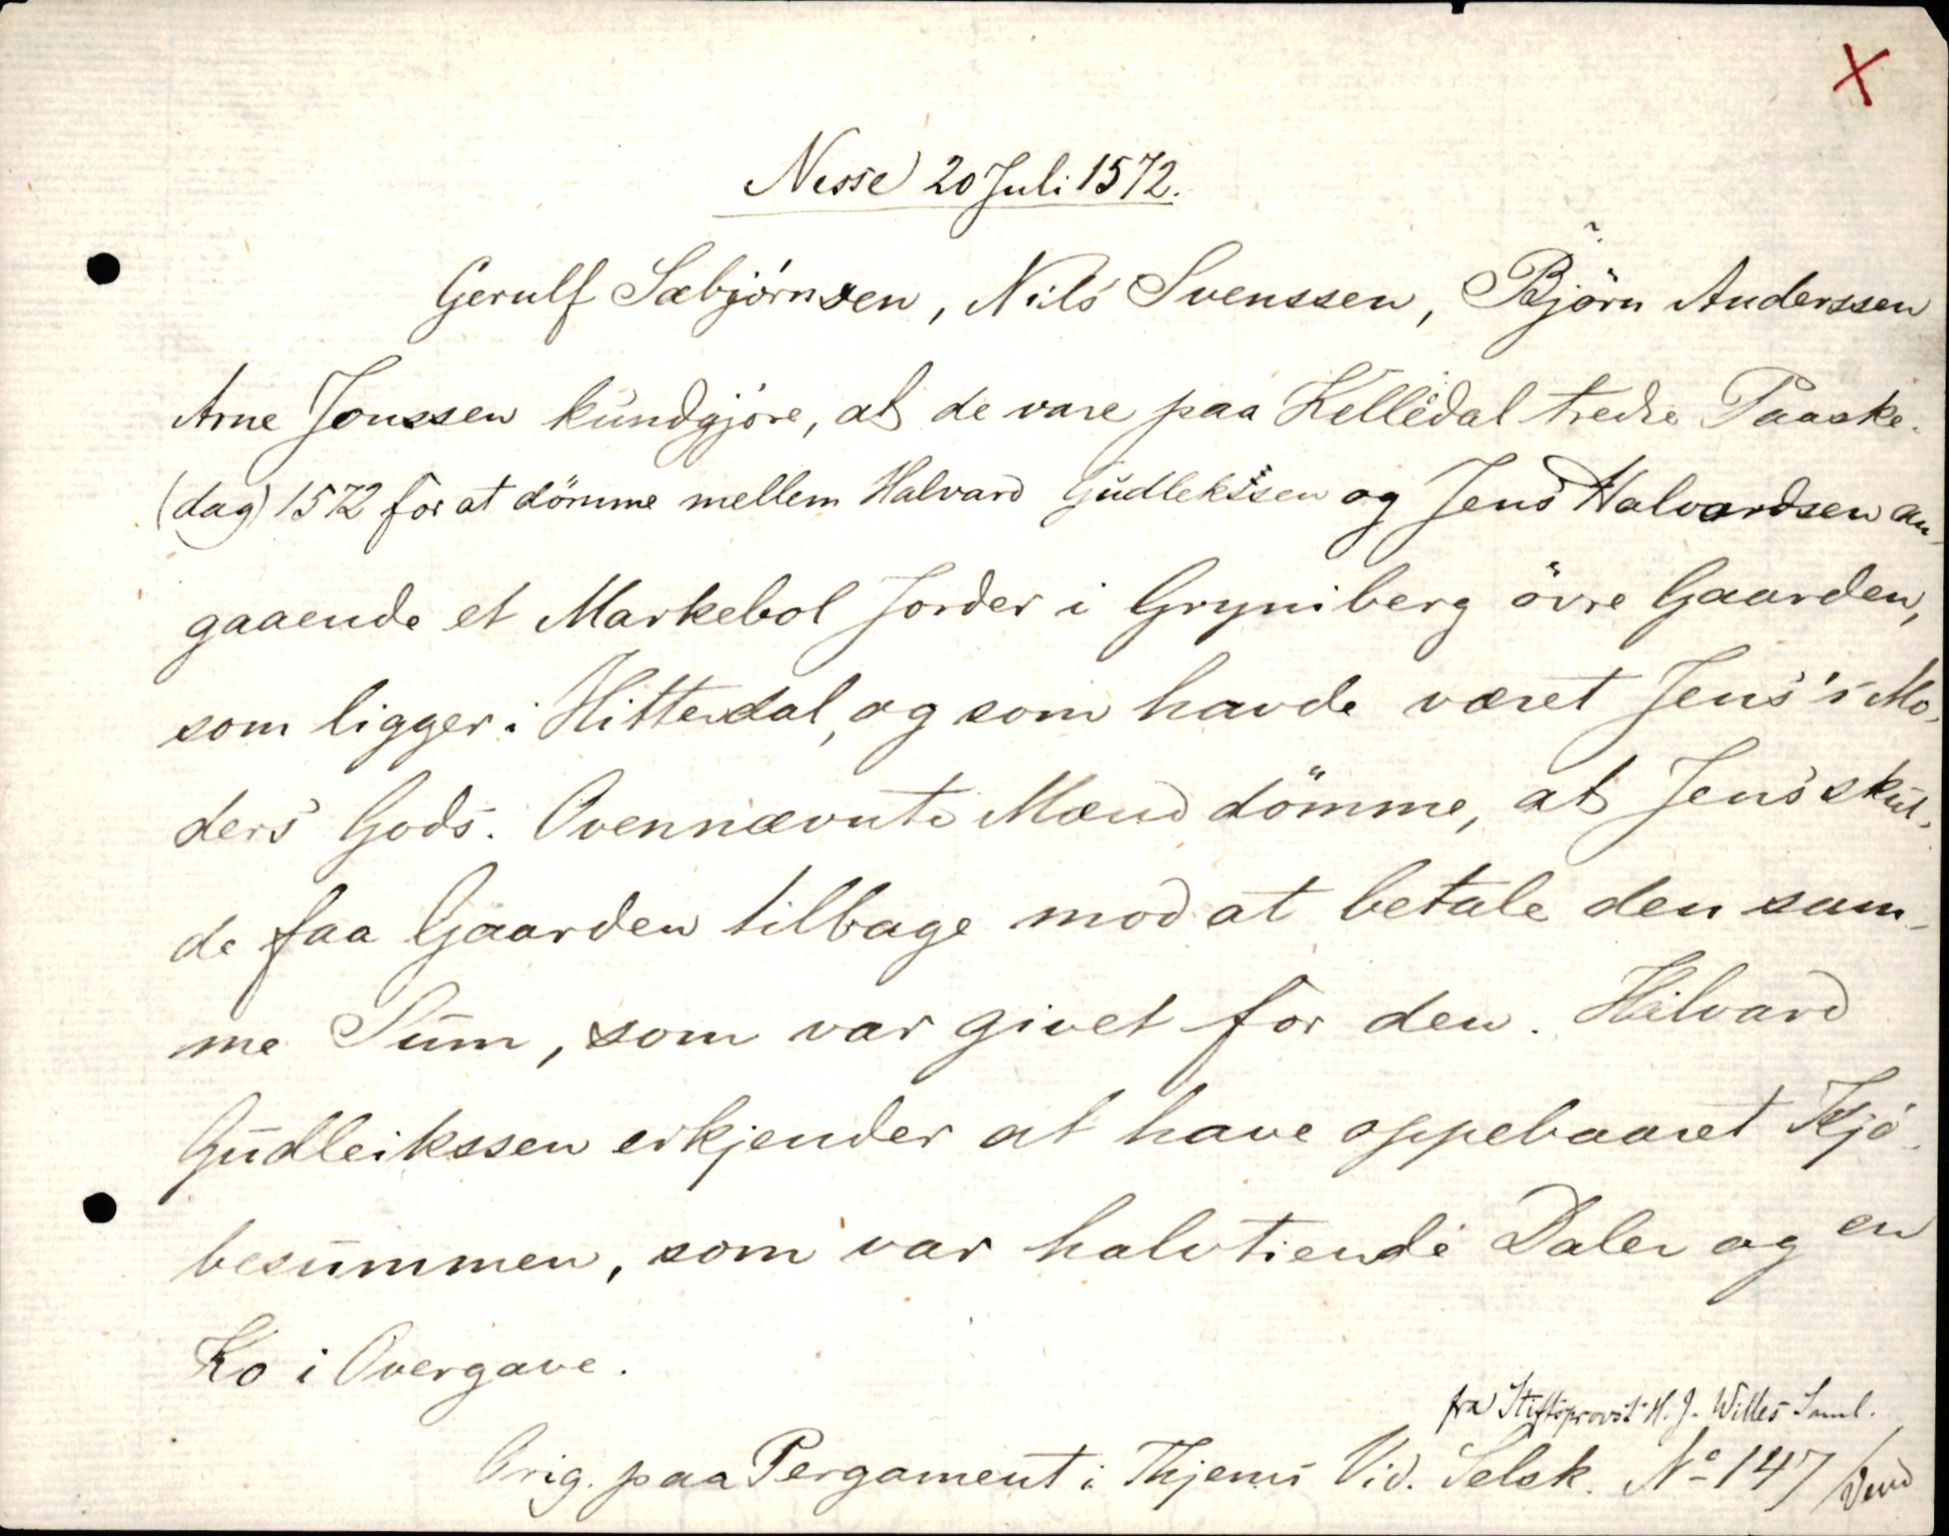 Nesse 20 Juli 1572.
Gerulf Sæbjörnsen, Nils Svenssen, Björn Anderssen
Arne Jonssen kundgjöre, at de vare paa Kelledal tredie Paaske-
(dag) 1572 for at dömme mellem Halvard Gudleikssen og Jens Halvardsen an-
gaaende et Markebol Jorder i Gryniberg övre Gaarden,
som ligger i Hitterdal, og som havde været Jens's Mo-
ders Gods. Ovennævnte Mænd dömme, at Jens skul-
de faa Gaarden tilbage mod at betale den sam-
me Sum, som var givet for den. Halvard
Gudleikssen erkjender at have oppebaaret Kjö-
besummen, som var halvtiende Daler og en
Ko i Overgave.
fra Stiftsprovst H. J. Willes Saml.
Orig. paa Pergament i Thjems Vid. Selsk. No 147 / Vend